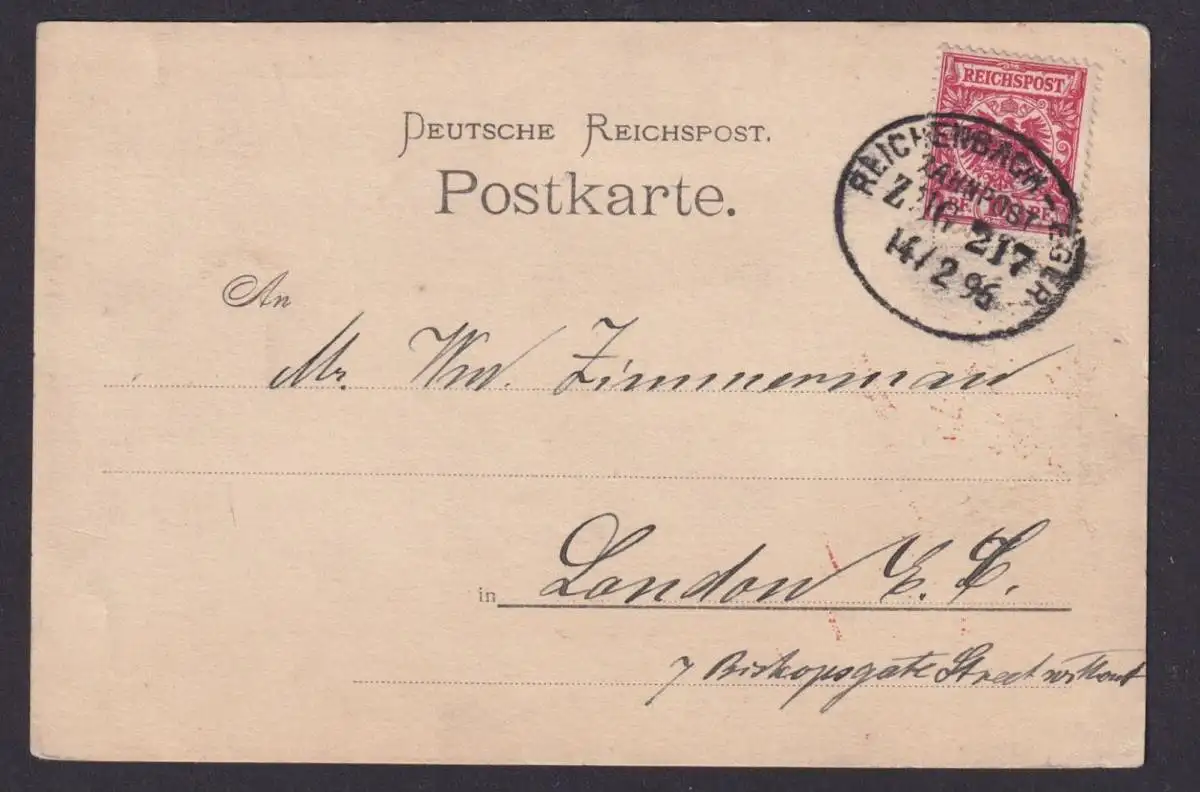 REICHSPOST
10 PF.
REICHENBACH - EGER
BAHNPOST
ZUG 217
14/2 96
DEUTSCHE REICHSPOST.
Postkarte.
An
Mr Wm. Zimmerman
in London E. C.
7 Bishopsgate Street without